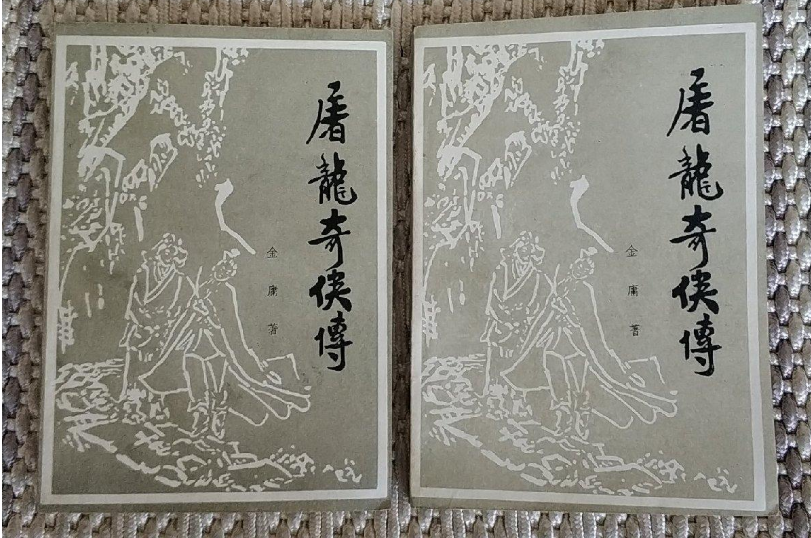 屠龍奇俠傳
金庸著
屠龍奇俠傳
金庸著